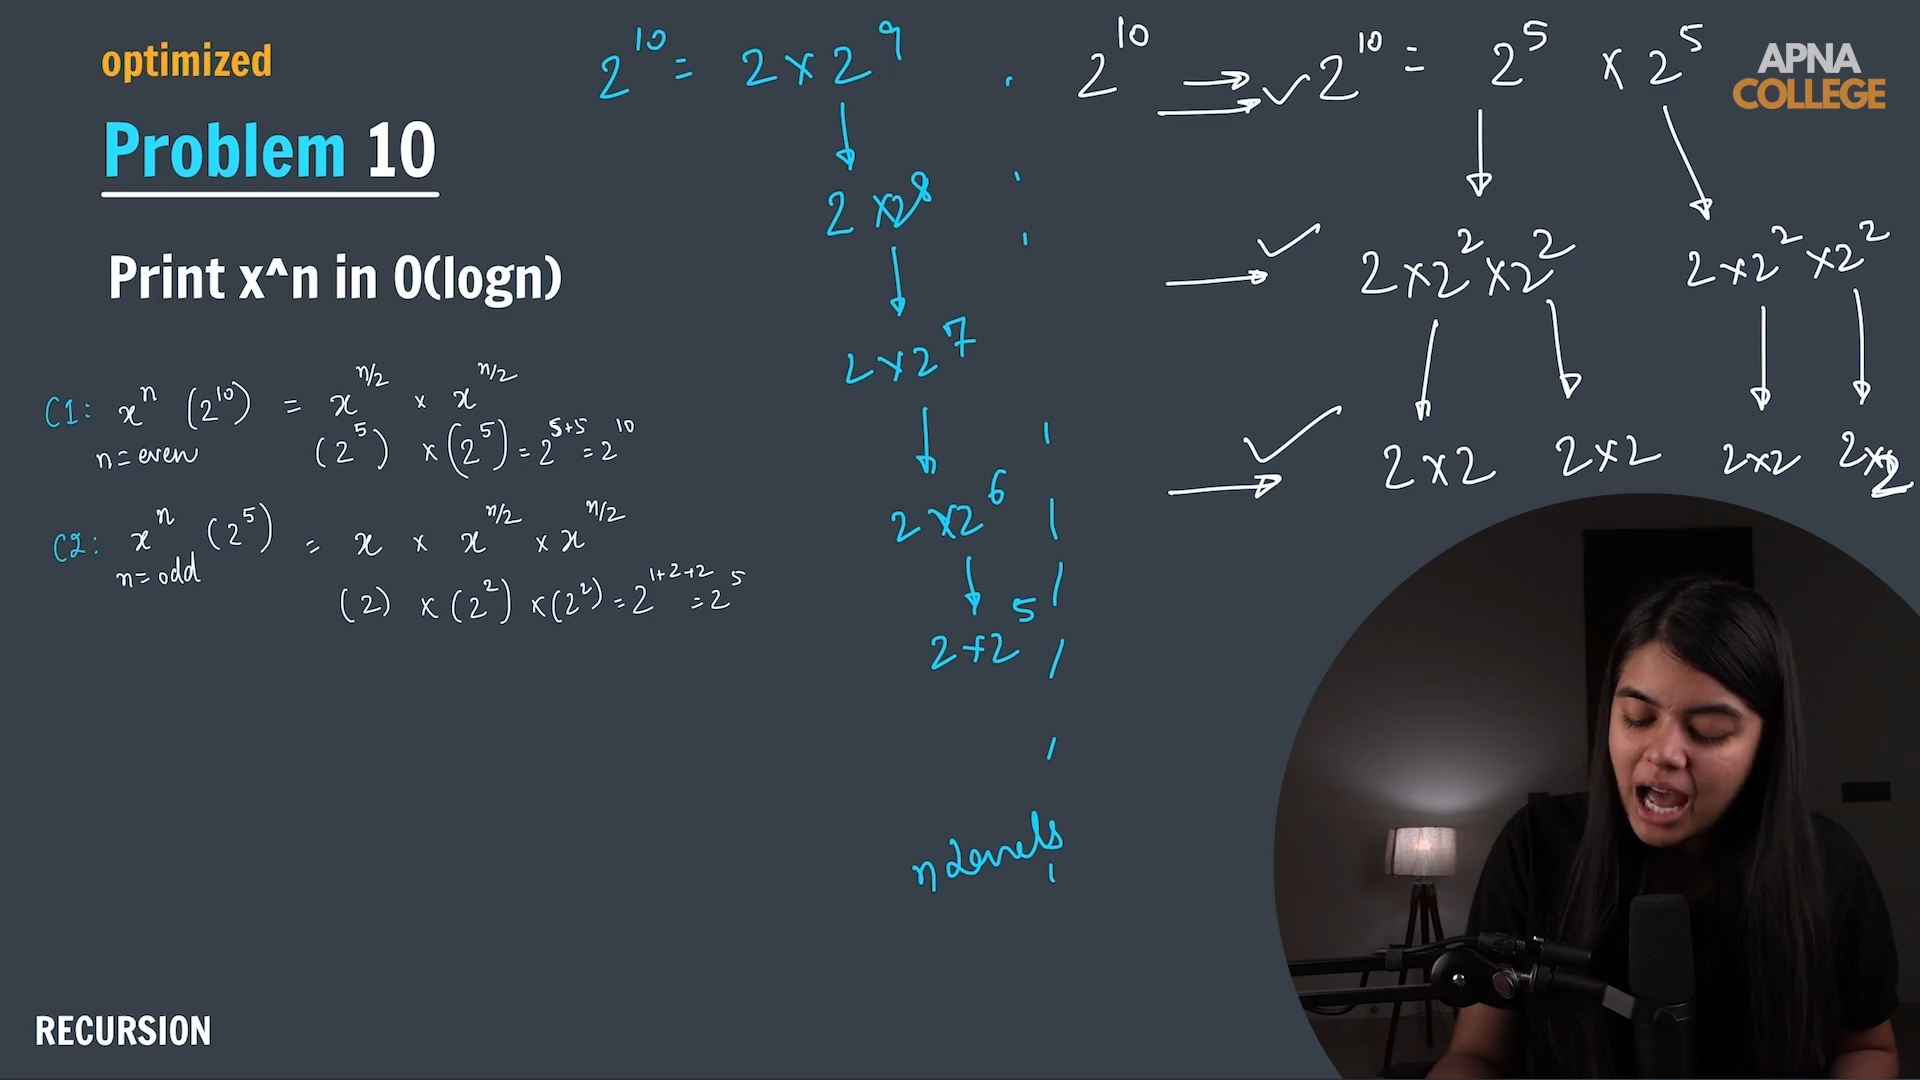 optimized
Problem 10
Print x^n in O(logn)
C1: x^n (2^10) = x^n/2 × x^n/2
n = even (2^5) × (2^5) = 2^5+5 = 2^10
C2: x^n (2^5) = x × x^n/2 × x^n/2
n = odd (2) × (2^2) × (2^2) = 2^1+2+2 = 2^5
2^10 = 2 × 2^9
2 × 2^8
2 × 2^7
2 × 2^6
2 × 2^5
n levels
2^10
2^10 = 2^5 × 2^5
2 × 2^2 × 2^2 2 × 2^2 × 2^2
2 × 2 2 × 2 2 × 2 2 × 2
APNA
COLLEGE
RECURSION